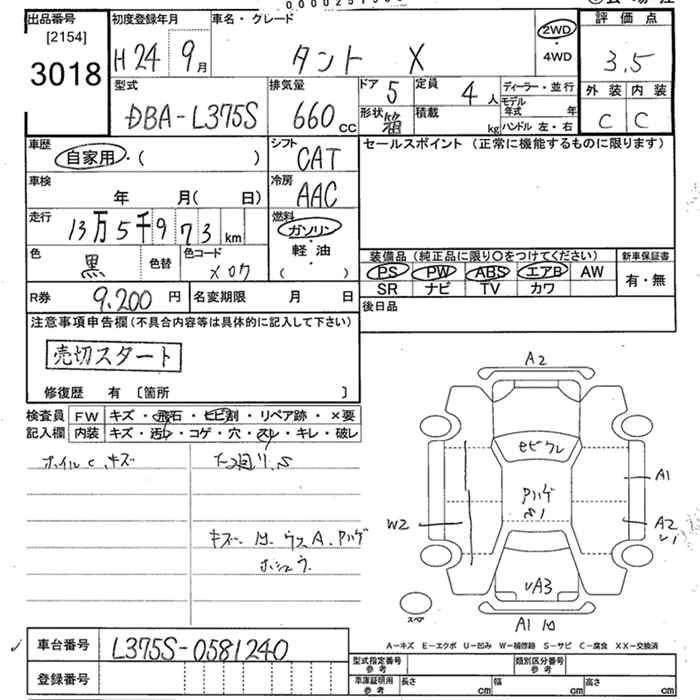 出品番号
[2154]
3018
初度登録年月
H 24 9月
車名・グレード
タント X
2WD
・
4WD
評価点
3.5
外装 内装
C C
型式
DBA-L375S
排気量
660 cc
ドア 5
形状
定員 4人
積載 kg
ディーラー・並行
モデル年式 年
ハンドル 左・右
車歴
自家用・( )
シフト
CAT
セールスポイント (正常に機能するものに限ります)
車検
年 月( 日)
冷房
AAC
走行
13万5千973km
燃料
ガソリン
・
軽油
( )
色
黒
色替
色コード
X07
装備品(純正品に限り○をつけてください)
新車保証書
PS PW ABS エアB AW
有・無
SR ナビ TV カワ
R券 9,200円
名変期限 月 日
後日品
注意事項申告欄(不具合内容等は具体的に記入して下さい)
売切スタート
修復歴 有 〔箇所 〕
検査員
記入欄
FW キズ・飛石・ヒビ割・リペア跡・×要
内装 キズ・汚レ・コゲ・穴・スレ・キレ・破レ
ホイルC.キズ
キズ. ウスA. Pハゲ
ホシュウ
A2
セビクレ
Pハゲ
A1
W2
A2
U1
UA3
A1
スペア
A-キズ E-エクボ U-凹み W-補修跡 S-サビ C-腐食 XX-交換済
車台番号
L375S-0581240
登録番号
型式指定番号
参考
類別区分番号
参考
車庫証明用
参考
長さ cm
幅 cm
高さ cm